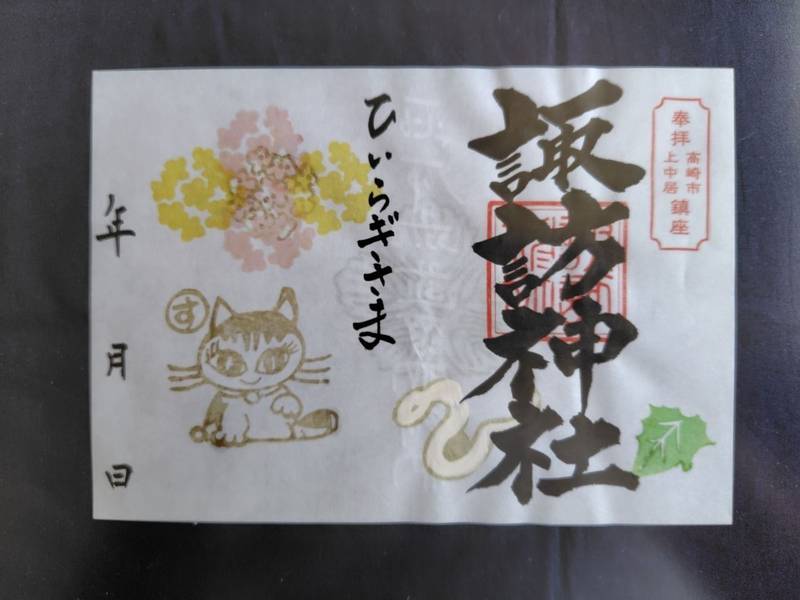 奉拝
高崎市
上中居
鎮座
諏訪神社
ひいらぎさま
す
年 月 日